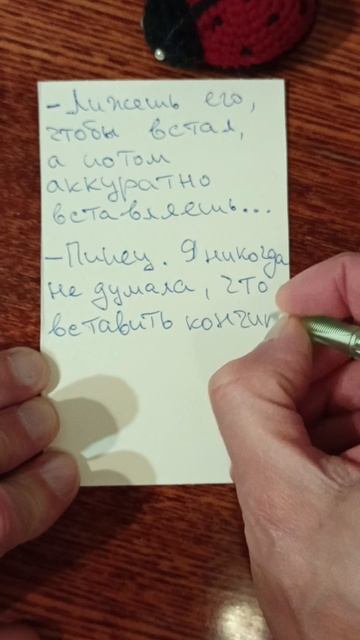 - Лижешь его,
чтобы встал,
а потом
аккуратно
вставляешь...
- Пипец. Я никогда
не думала, что
вставить кончик